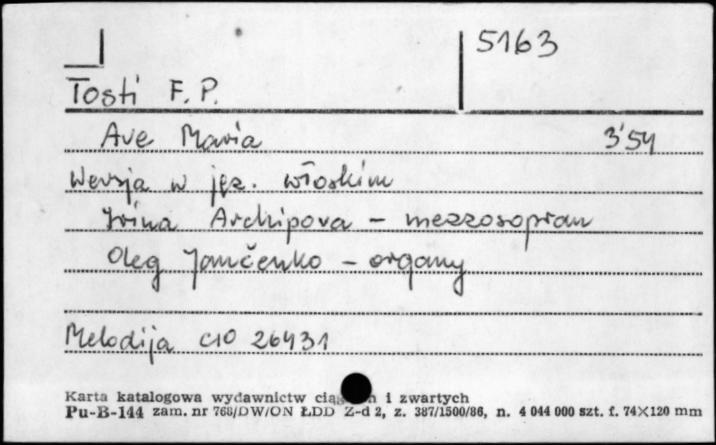 5163
Tosti F. P.
Ave Maria 3'54
Wersja w jęz. włoskim
Irina Archipova - mezzosopran
Oleg Jančenko - organy
Melodija C10 26431
Karta katalogowa wydawnictw ciągłych i zwartych
Pu-B-144 zam. nr 768/DW/ON ŁDD Z-d 2, z. 387/1500/86, n. 4 044 000 szt. f. 74×120 mm